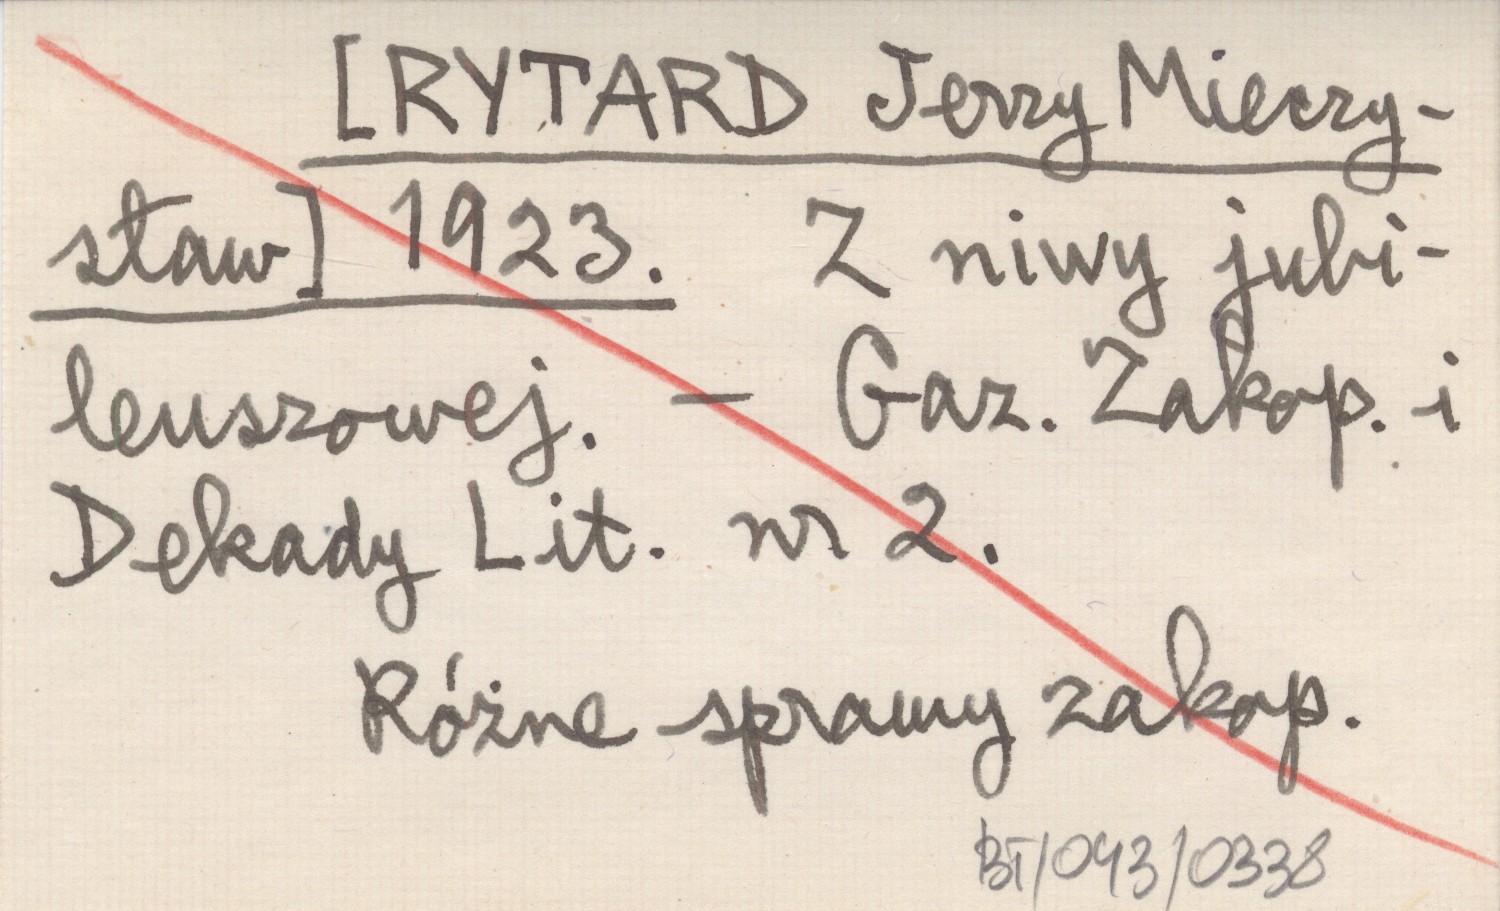 [RYTARD Jerzy Mieczy-
sław] 1923. Z niwy jubi-
leuszowej. — Gaz. Zakop. i
Dekady Lit. nr 2.
Różne sprawy zakop.
BT/043/0338